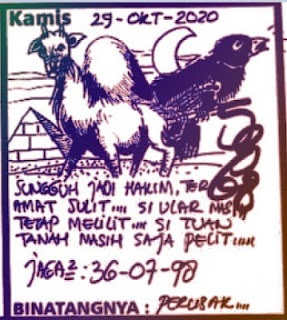 Kamis 29-OKT-2020
SUNGGUH JADI HAKIM, TER
AMAT SULIT.... SI ULAR MASIH
TETAP MELILIT.... SI TUAN
TANAH MASIH SAJA PELIT.....
JAGA2 : 36-07-98
BINATANGNYA : PERUSAK....